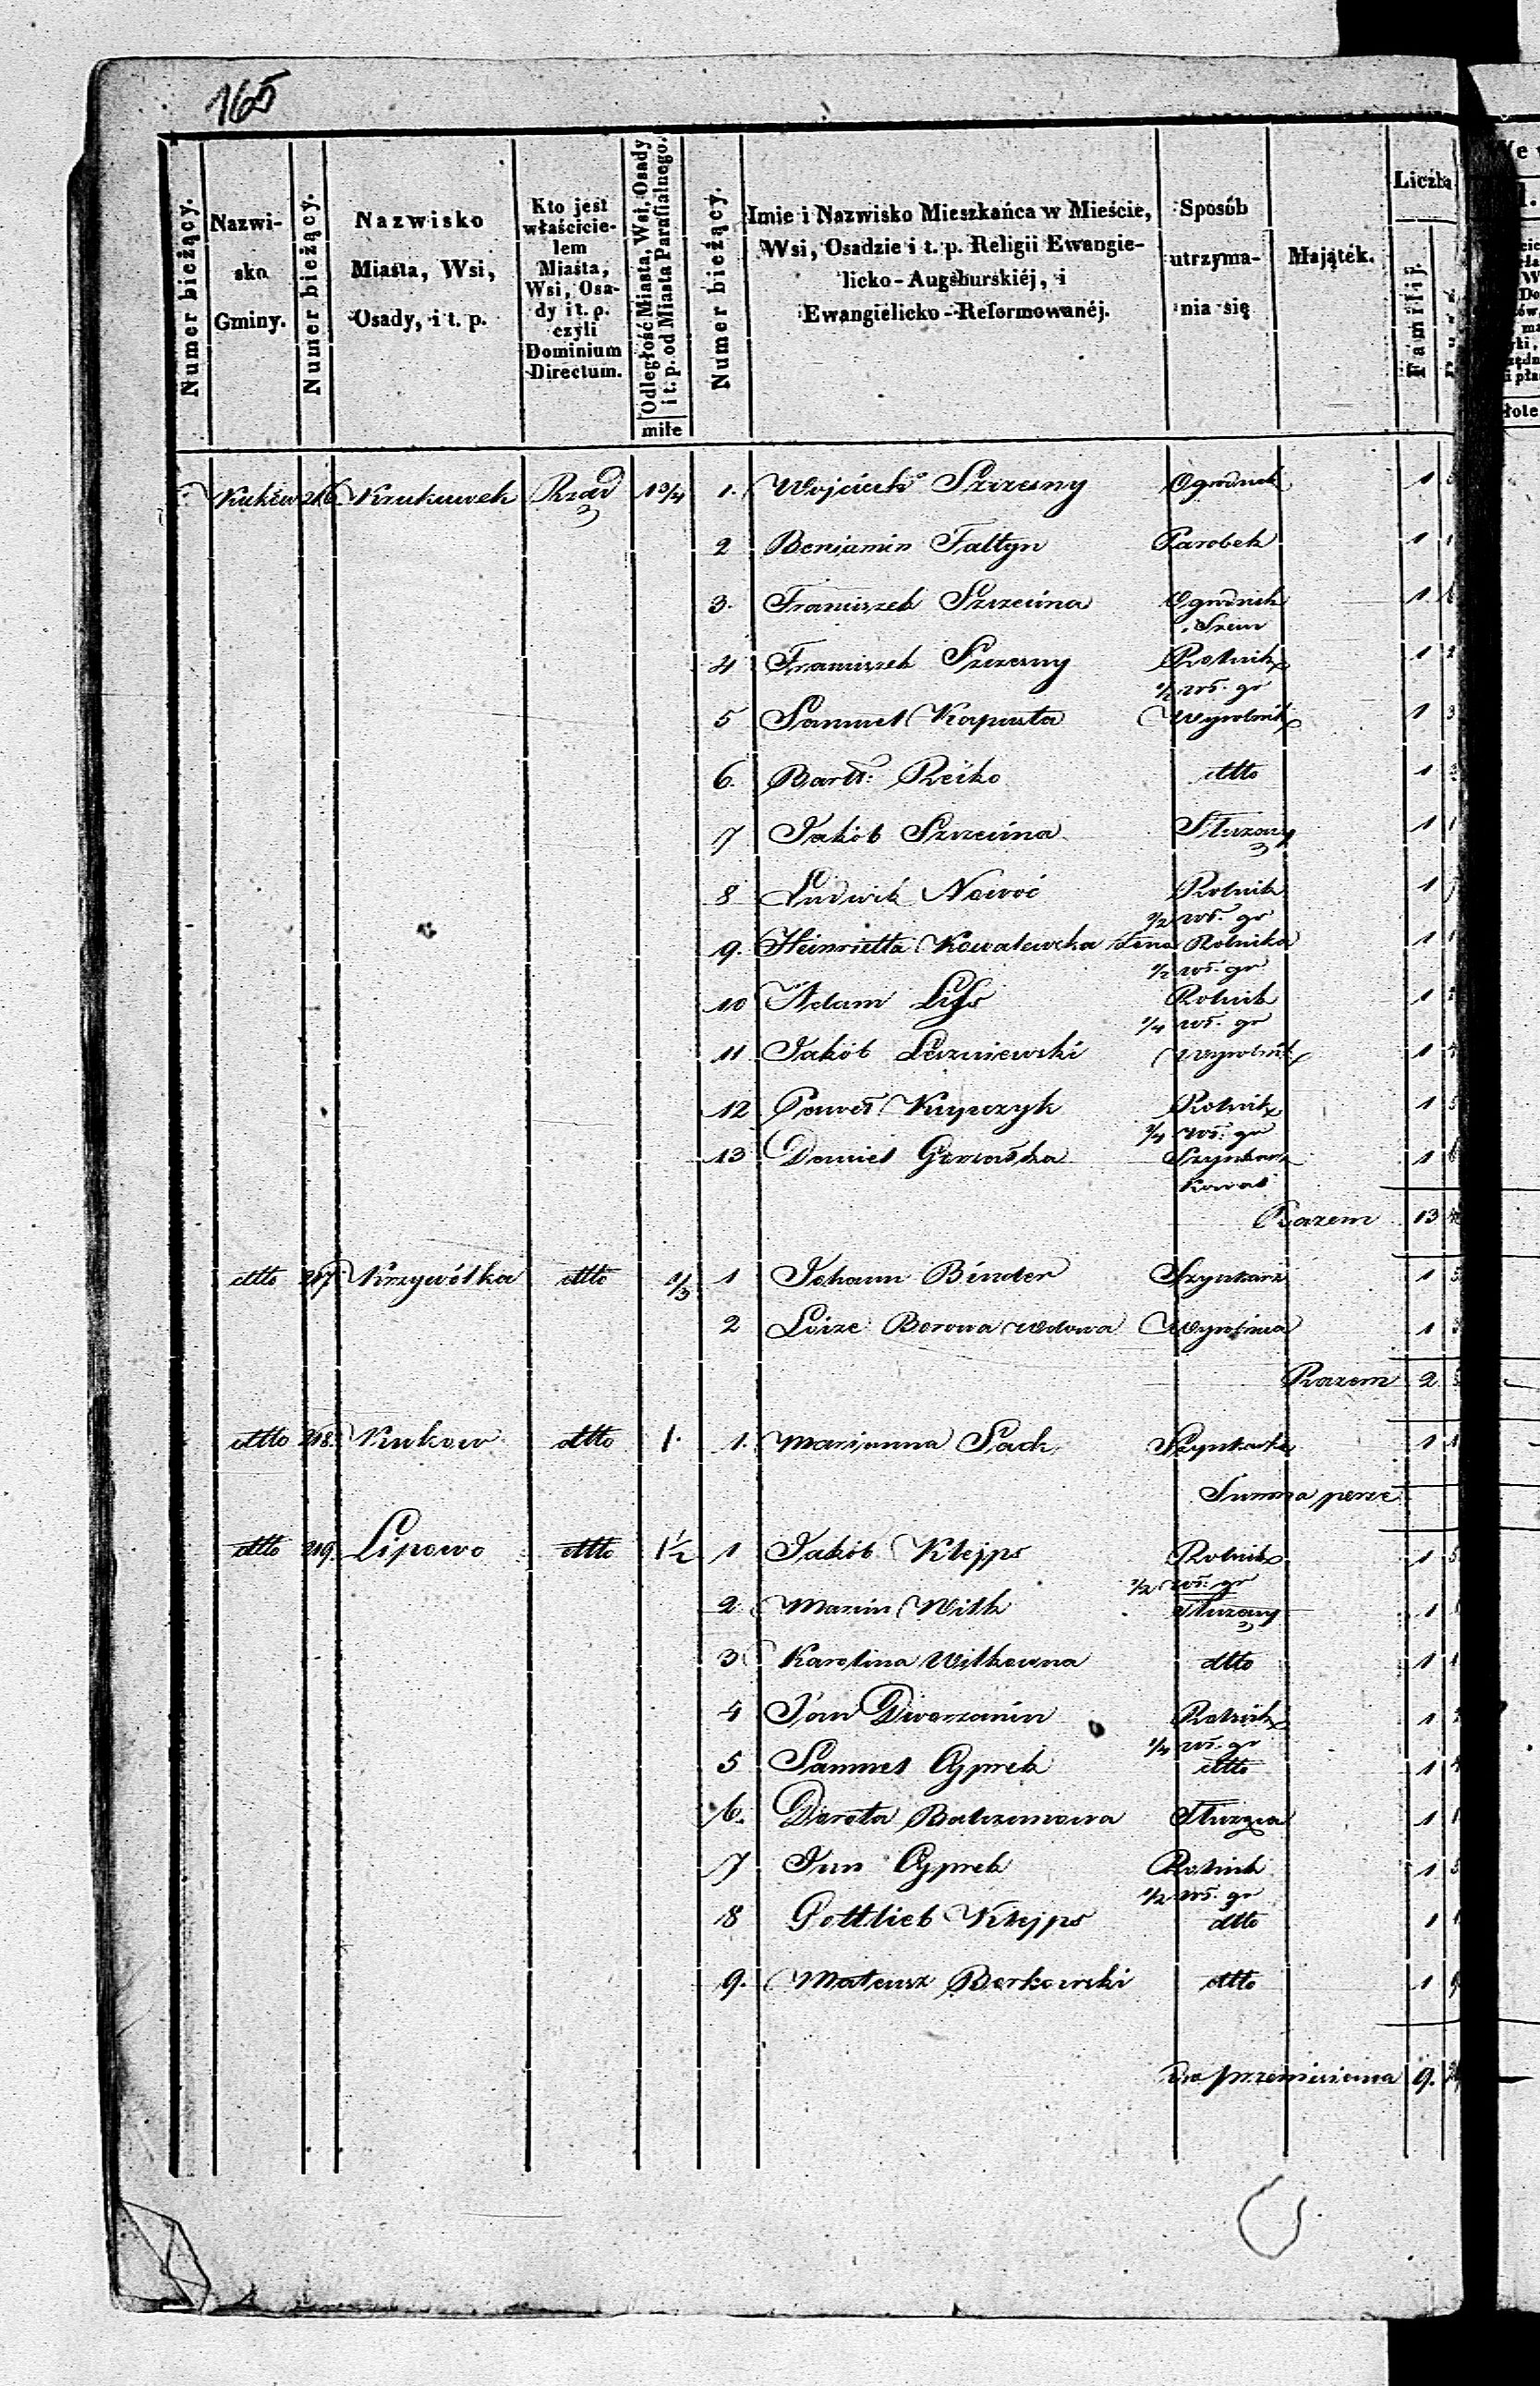 165
Numer bieżący.
Nazwi-
sko
Gminy.
Numer bieżący.
Nazwisko
Miasta, Wsi,
Osady, i t. p.
Kto jest
właścicie-
lem
Miasta,
Wsi, Osa-
dy i t. p.
czyli
Dominium
Directum.
Odległość Miasta, Wsi, Osady
i t. p. od Miasta Parafialnego.
mile
Numer bieżący.
Imie i Nazwisko Mieszkańca w Mieście,
Wsi, Osadzie i t. p. Religii Ewangie-
licko-Augsburskiéj, i
Ewangielicko-Reformowanéj.
Sposób
utrzyma-
nia się
Majątek.
Liczba
Familij.
Kuków 216 Krukuwek Rząd 1 3/4 1. Wojciech Szczesny Ogrodnik 1
2 Beniamin Faltyn Parobek 1
3. Franciszek Szczecina Ogrodnik 1
4 Franciszek Szczesny Rolnik 1
1/2 wł. gr
5 Samuel Kapusta Wyrobnik 1
6. Bartł: Rećko dtto 1
7 Jakób Szczecina Służący 1
8 Ludwik Nowoć Rolnik 1
1/2 wł. gr
9. Heinrietta Kowalewska żona Rolnika 1
1/2 wł. gr
10 Adam Liss Rolnik 1
1/4 wł. gr
11 Jakób Leszniewski Wyrobnik 1
12 Paweł Krypczyk Rolnik 1
3/4 wł. gr
13 Daniel Szynkarz 1
Kowal
Razem 13
dtto 217. Krzywólka dtto 1/3 1 Johann Binder Szynkarz 1
2 Loize Borowa wdowa Wyrobnica 1
Razem 2
dtto 218. Kukow dtto 1. 1. Marianna Sack Szynkarka 1
Summa perse
dtto 219. Lipowo dtto 1 1/2 1 Jakób Klejps Rolnik 1
1/2 wł. gr
2 Marcin Witk Służący 1
3 Karolina Witkowna dtto 1
4 Jan Dworzanin Rolnik 1
1/4 wł. gr
5 Samuel Cyprek dtto 1
6. Dorota Służąca 1
7 Jan Cyprek Rolnik 1
1/2 wł. gr
8 Gottlieb Klejps dtto 1
9. Mateusz Borkowski dtto 1
Do przeniesienia 9.